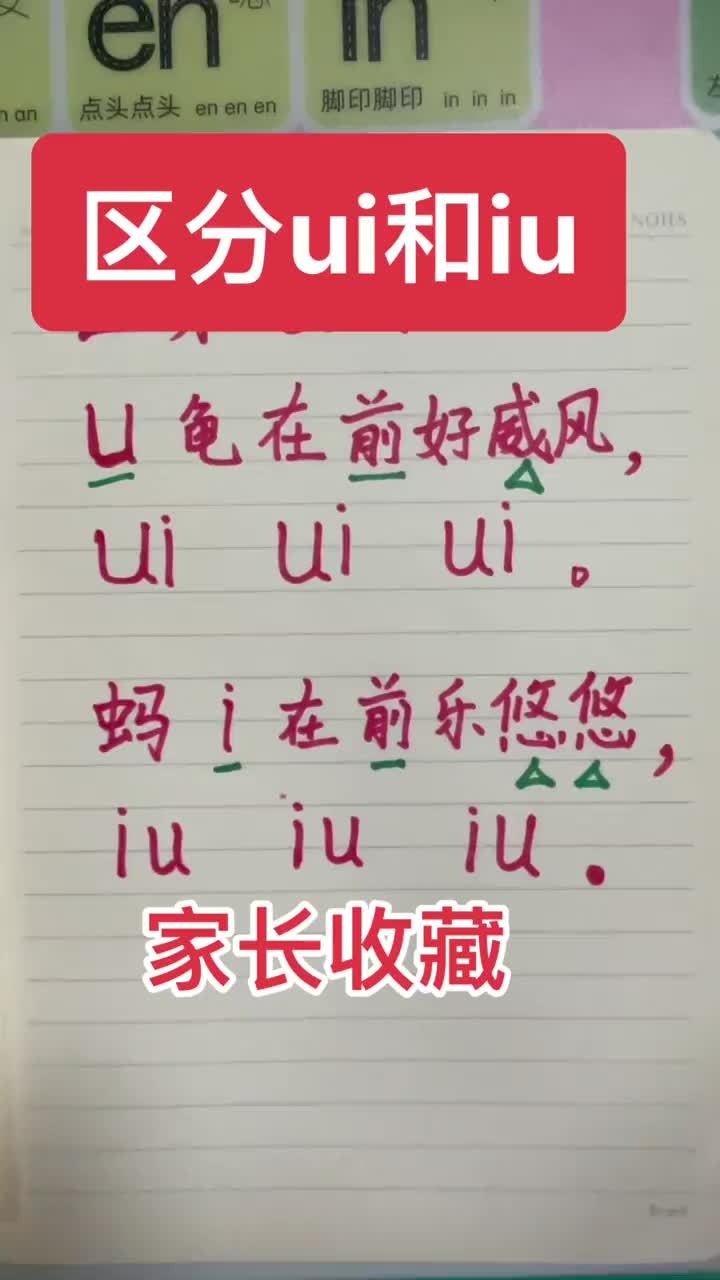 en in
an 点头点头 en en en 脚印脚印 in in in
区分ui和iu
NOTES
u 龟在前好威风,
ui ui ui 。
蚂 i 在前乐悠悠,
iu iu iu .
家长收藏